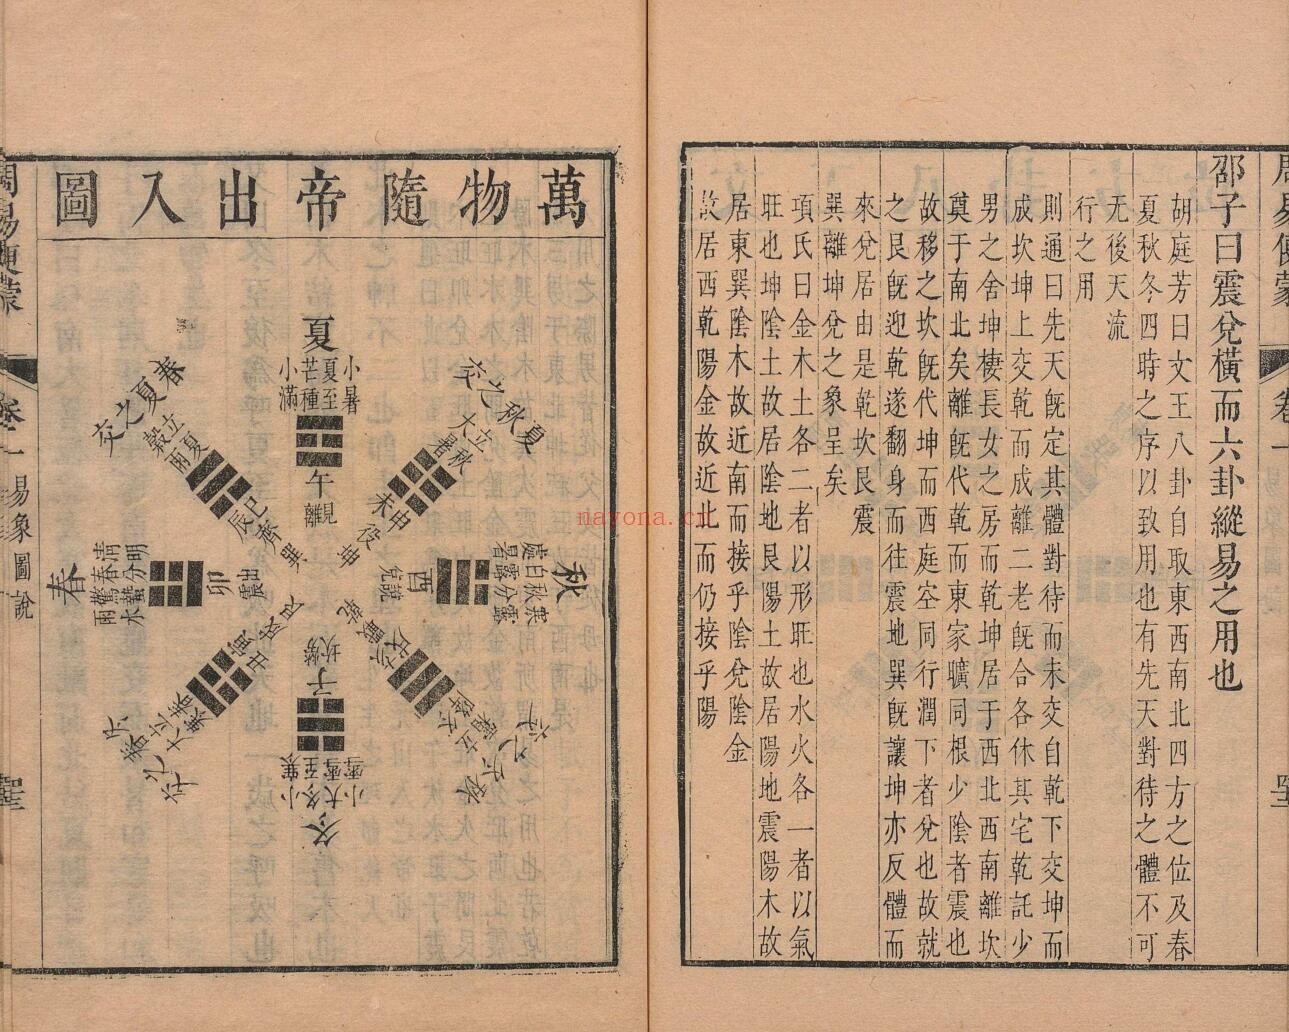 邵子曰震兌橫而六卦縱易之用也
胡庭芳曰文王八卦自取東西南北四方之位及春
夏秋冬四時之序以致用也有先天對待之體不可
無後天流
行之用
則通曰先天旣定其體對待而未交自乾下交坤而
成坎坤上交乾而成離二老旣合各休其宅乾託少
男之舍坤棲長女之房而乾坤居于西北西南離坎
奠于南北矣離旣代乾而東家曠同根少陰者震也
故移之坎旣代坤而西庭空同行潤下者兌也故就
之艮旣迎乾遂翻身而往震地巽旣讓坤亦反體而
來兌居由是乾坎艮震
巽離坤兌之象呈矣
項氏曰金木土各二者以形旺也水火各一者以氣
旺也坤陰土故居陰地艮陽土故居陽地震陽木故
居東巽陰木故近南而接乎陰兌陰金
故居西乾陽金故近北而仍接乎陽
萬物隨帝出入圖
夏
小暑
夏至
芒種
小滿
午
離見
夏秋之交
立秋
大暑
未申
坤役
秋
寒露
秋分
白露
處暑
酉
兌說
秋冬之交
立冬
霜降
戌亥
乾戰
冬
小雪
大雪
冬至
小寒
子
坎勞
冬春之交
立春
大寒
丑寅
艮成
春
清明
春分
驚蟄
雨水
卯
震出
春夏之交
立夏
穀雨
辰巳
巽齊
周易便蒙
卷一
易象圖說
nayona.cn